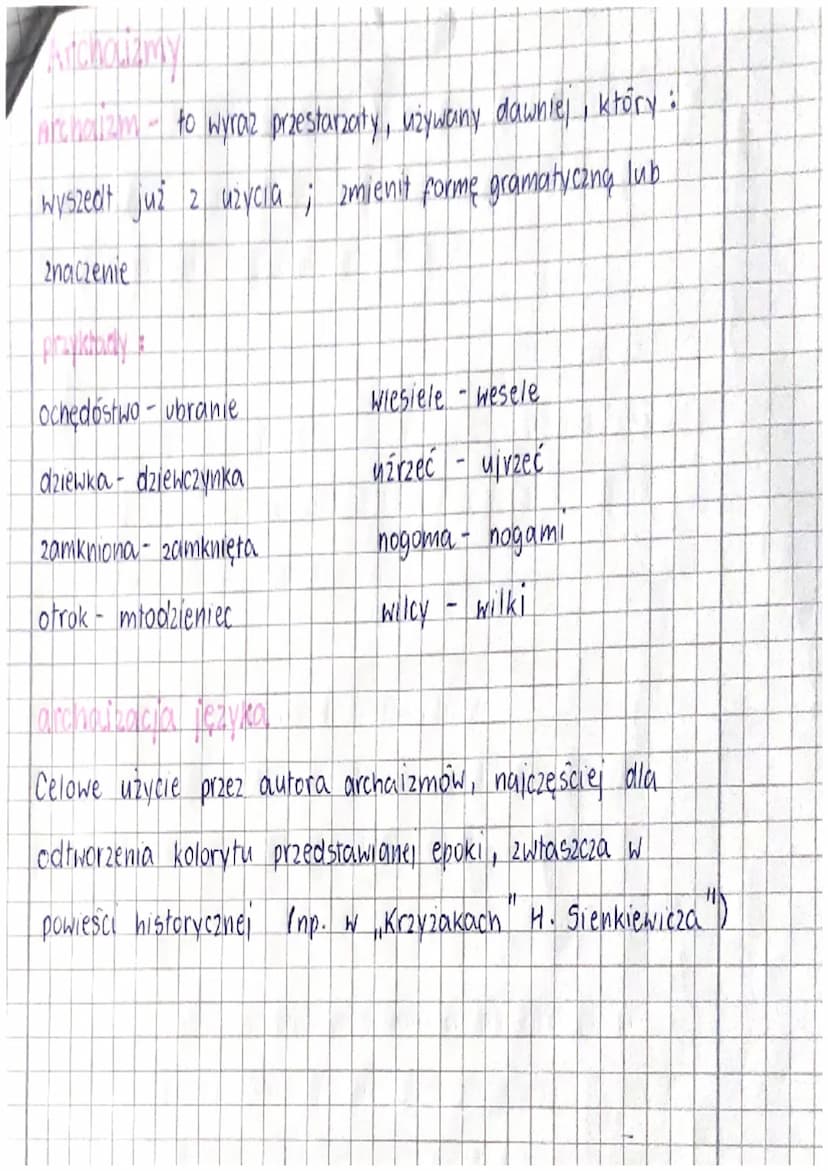 Archaizmy
Archaizm - to wyraz przestarzały, używany dawniej, który:
wyszedł już z użycia ; zmienił formę gramatyczną lub
znaczenie
przykłady:
ochędóstwo - ubranie wiesiele - wesele
dziewka - dziewczynka uźrzeć - ujrzeć
zamkniona - zamknięta nogoma - nogami
otrok - młodzieniec wilcy - wilki
archaizacja języka
Celowe użycie przez autora archaizmów, najczęściej dla
odtworzenia kolorytu przedstawianej epoki, zwłaszcza w
powieści historycznej (np. w „Krzyżakach" H. Sienkiewicza")